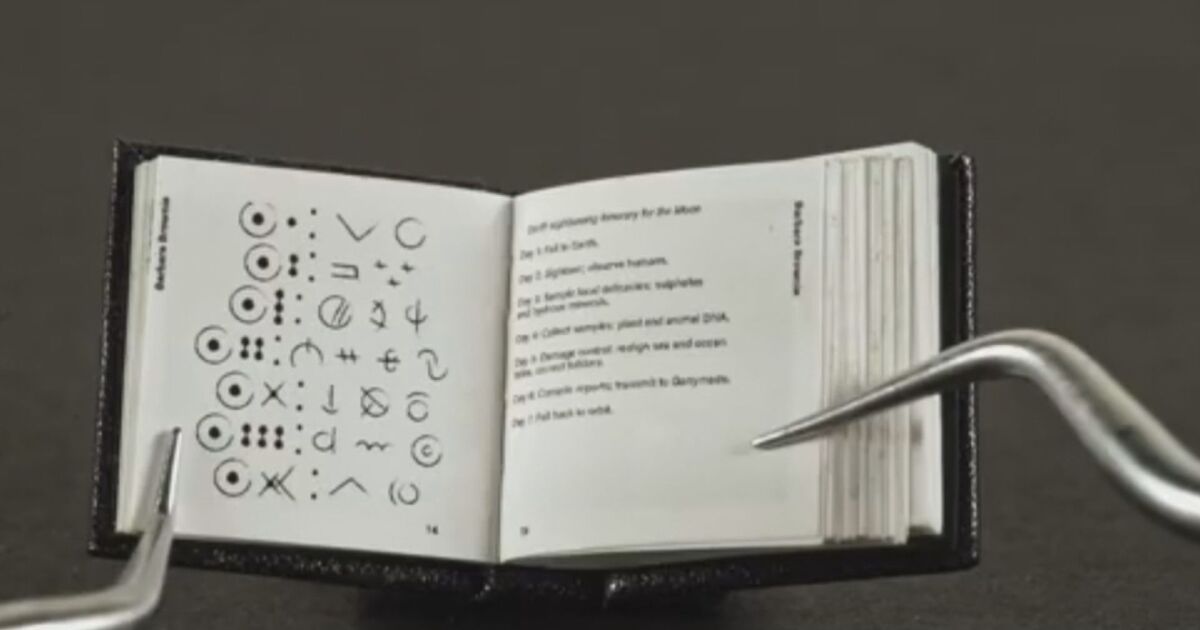 Barbara Brownie
14
sightseeing itinerary for the Moon
Day 1: Fall to Earth.
Day 2: Sightsee; observe humans.
Day 3: Sample local delicacies; sulphates
and hydrous minerals.
Day 4: Collect samples; plant and animal DNA.
Day 5: Damage control: realign sea and ocean
tides, correct folklore.
Day 6: Compile reports; transmit to Ganymede.
Day 7: Fall back to orbit.
Barbara Brownie